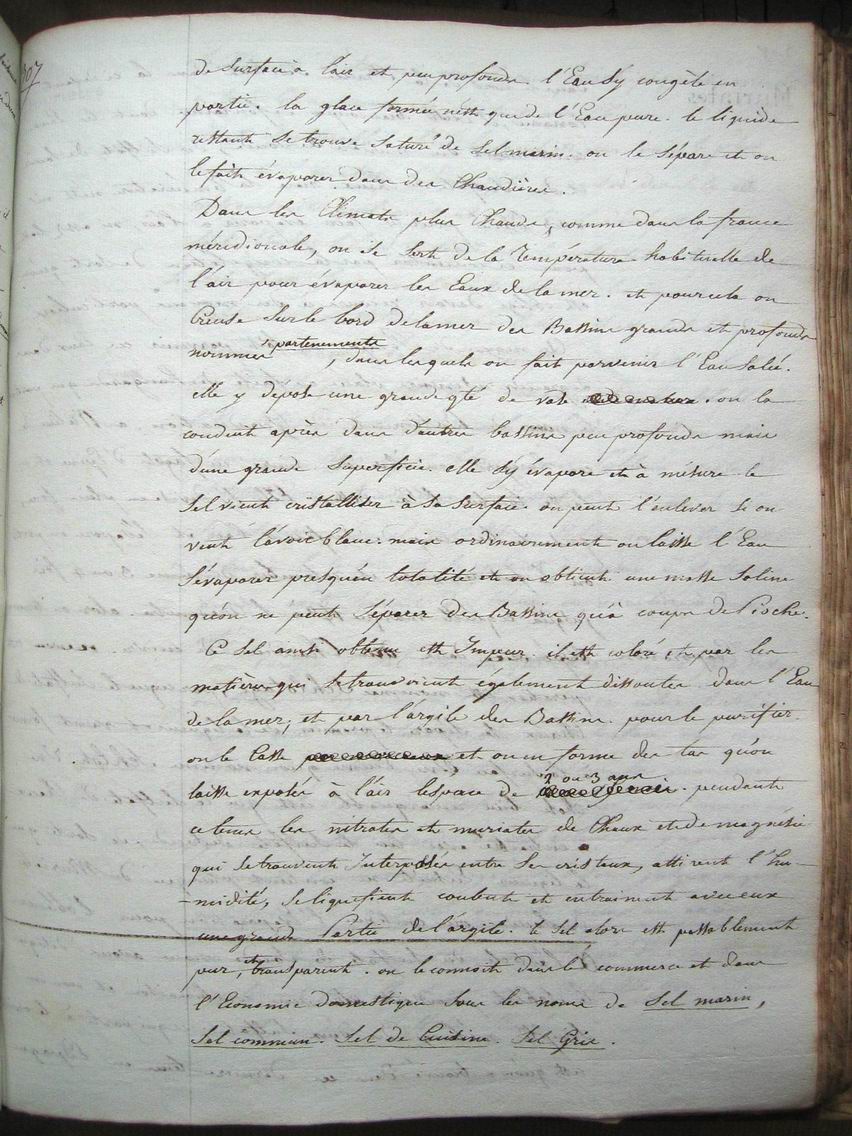 307
de surface à l'air et peu profonds. l'Eau s'y congèle en
partie. la glace formée n'est que de l'Eau pure. le liquide
restant se trouve saturé de Sel marin. on le sépare et on
le fait évaporer dans des Chaudières.
Dans les Climats plus Chauds, comme dans la france
méridionale, on se sert de la Température habituelle de
l'air pour évaporer les Eaux de la mer. et pour cela on
Creuse sur le bord de la mer des Bassins grands et profonds
nommés partenements, dans lesquels on fait parvenir l'Eau Salée.
elle y depose une grande qté de vase. on la
conduit après dans d'autres bassins peu profonds mais
d'une grande Superficie. elle s'y évapore et à mesure le
Sel vient cristalliser à sa surface. on peut l'enlever si on
veut l'avoir blanc: mais ordinairement on laisse l'Eau
s'évaporer presqu'en totalité et on obtient une masse Saline
qu'on ne peut séparer des Bassins qu'à coups de Pioche.
Ce Sel ainsi obtenu est Impur. il est coloré et par les
matières qui se trouvoient egalement dissoutes dans l'Eau
de la mer, et par l'argile des Bassins. pour le purifier
on le Casse et on en forme des tas qu'on
laisse exposés à l'air l'espace de 2 ou 3 ans. pendant
ce tems les nitrates et muriates de Chaux et de magnésie
qui se trouvent Interposés entre ses cristaux, attirent l'hu-
-midité, se liquefient coulent et entrainent avec eux
une grande Partie de l'argile. le Sel alors est passablement
pur, et transparent. on le connoit dans le commerce et dans
l'Economie domestique sous les noms de Sel marin,
Sel commun. Sel de Cuisine. Sel Gris.